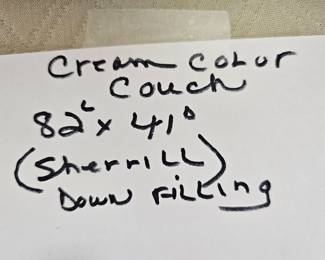 Cream Color
Couch
82L x 41D
(Sherrill)
Down Filling